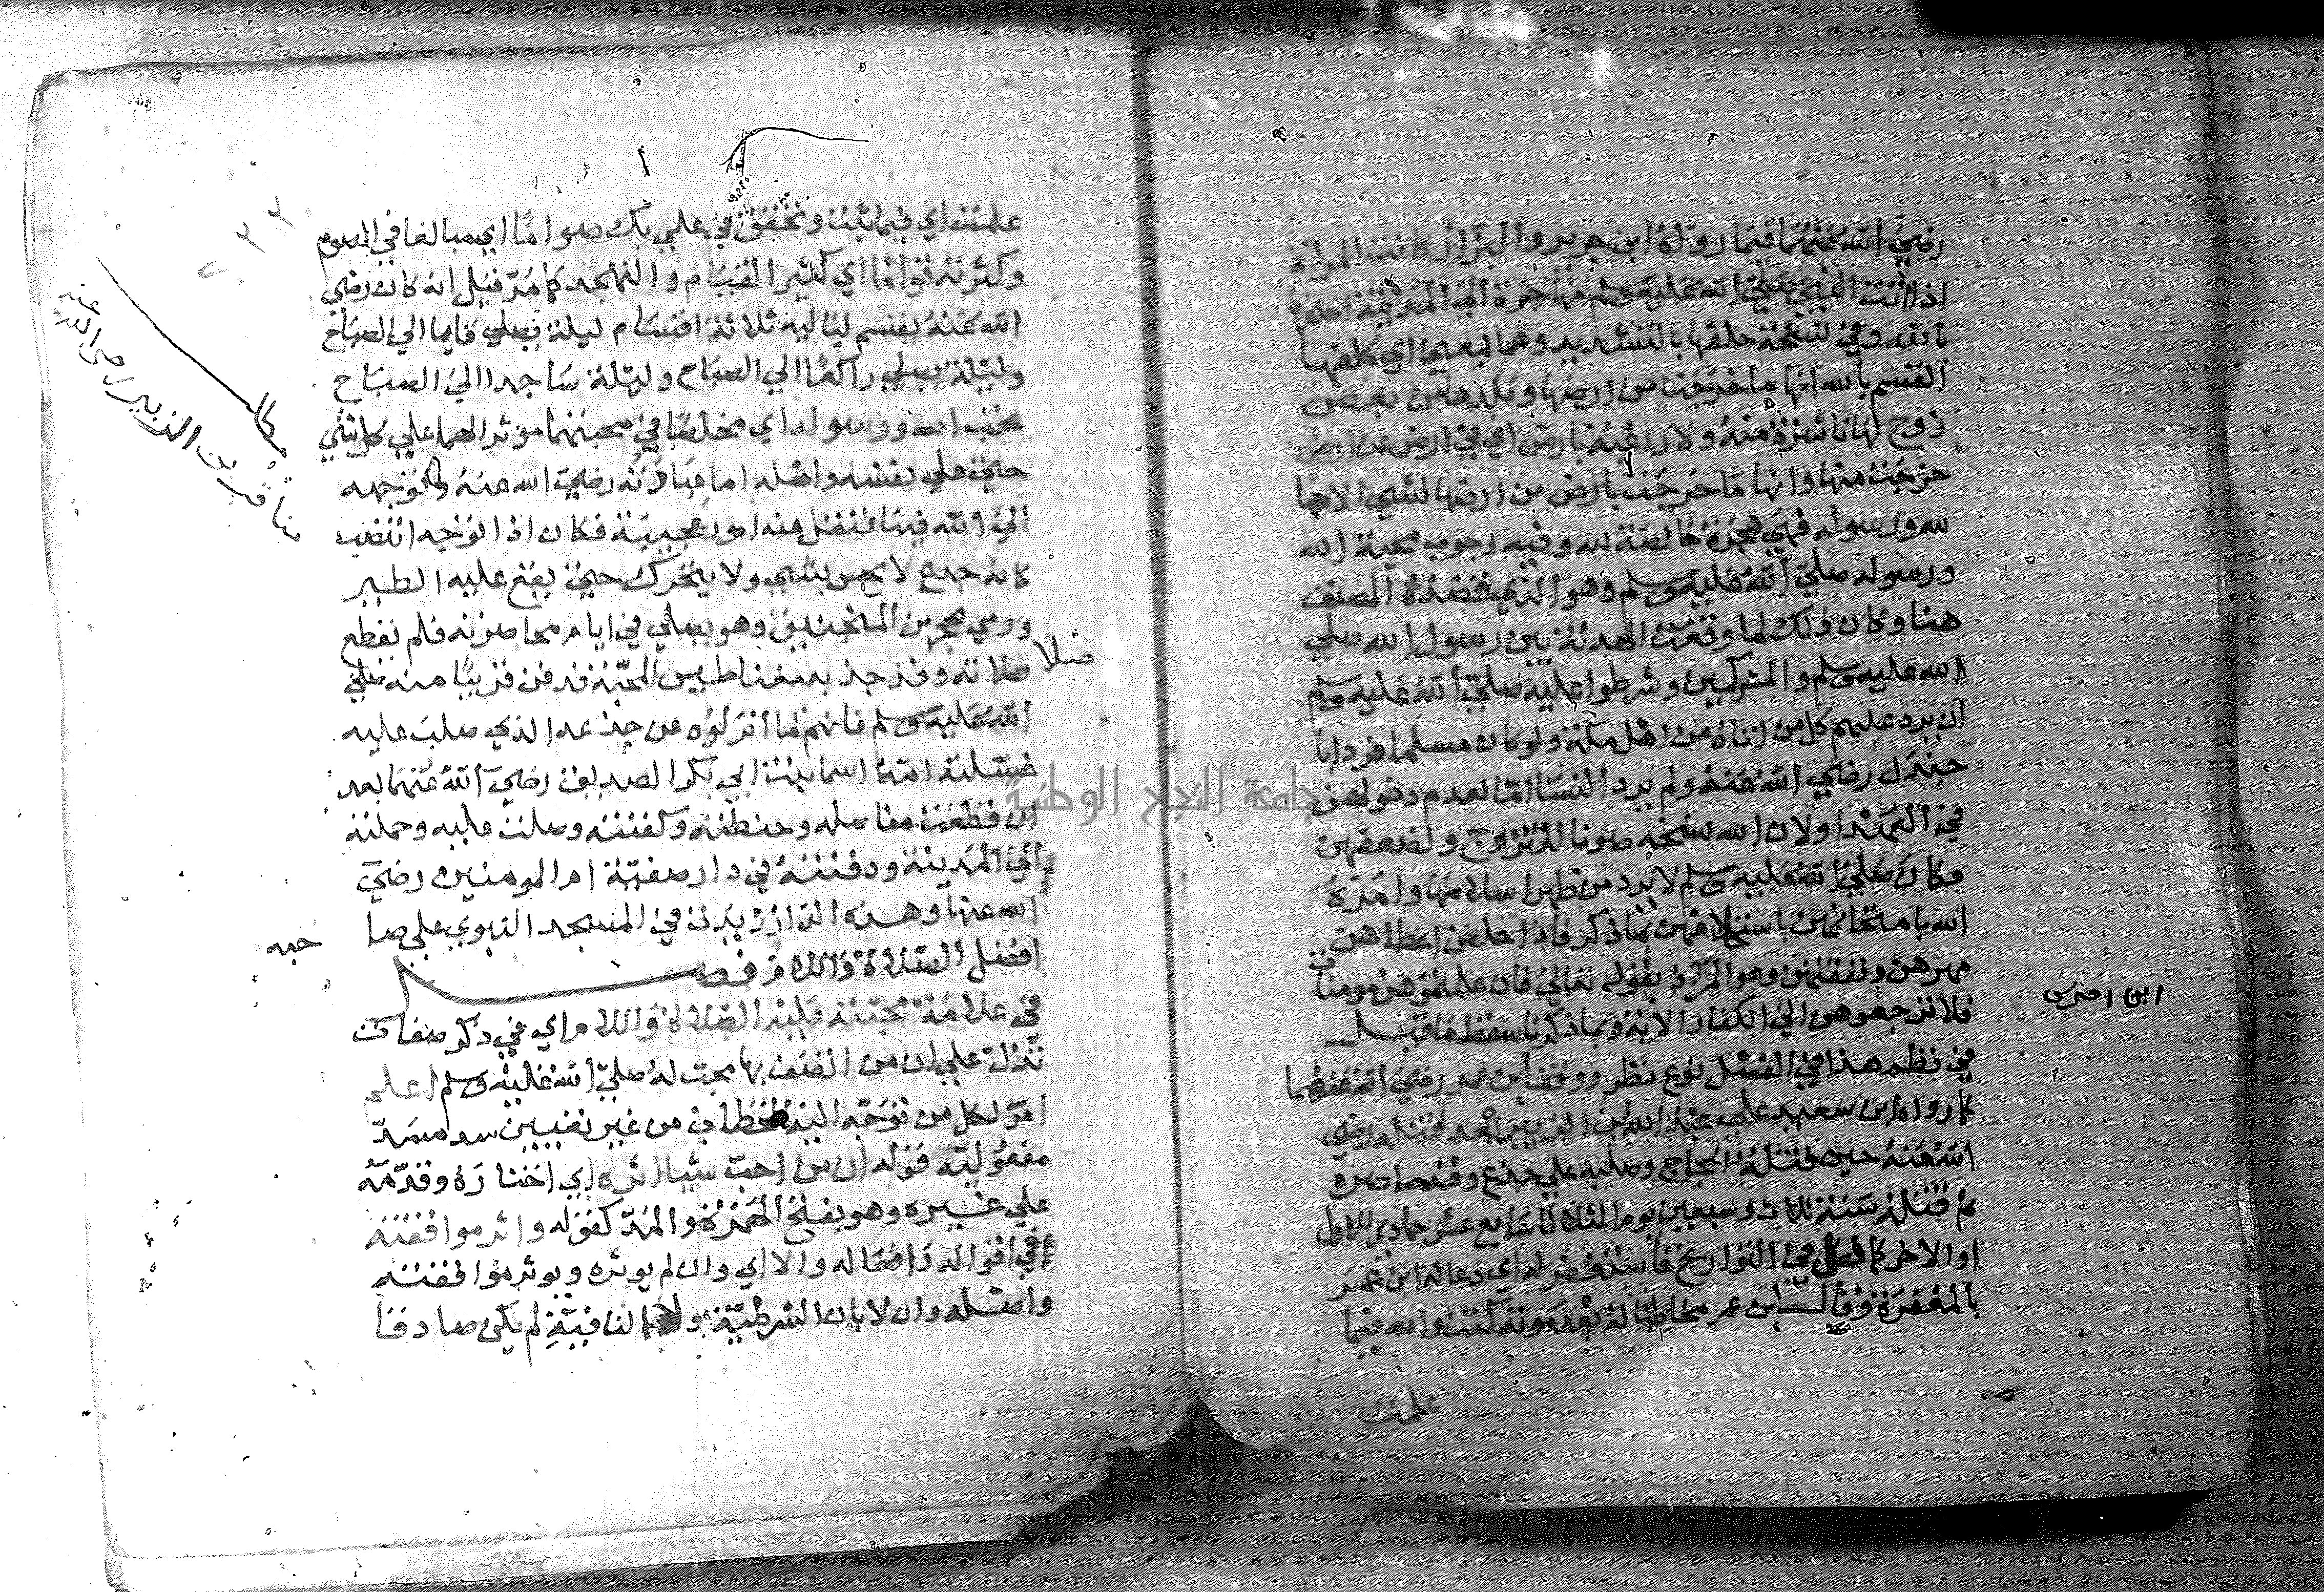 رضي الله عنهما فيما رواه ابن جرير والبزار كانت المراة
اذا اتت النبي صلي الله عليه وسلم مهاجرة الي المدينة احلفها
بالله وفي نسخة حلفها بالتشديد وهما بمعني اي كلفها
القسم بالله انها ما خرجت من ارضها وبلدها من بغض
زوج لها ناشزة منه ولا راغبة بارض اي في ارض عن ارض
خرجت منها وانها ما خرجت بارض من ارضها لشي الا حبا
لله ورسوله فهي هجرة خالصة لله وفيه وجوب محبة الله
ورسوله صلي الله عليه وسلم وهو الذي قصده المصنف
هنا وكان ذلك لما وقعت الهدنة بين رسول الله صلي
الله عليه وسلم والمشركين وشرطوا عليه صلي الله عليه وسلم
ان يرد عليهم كل من اتاه من اهل مكة ولو كان مسلما فرد ابا
جندل رضي الله عنه ولم يرد النسا اما لعدم دخولهن
في العهد او لان الله نسخه صونا للتزوج ولضعفهن
فكان صلي الله عليه وسلم لا يرد من ظهر اسلامها وامره
الله بامتحانهن باستحلافهن بما ذكر فاذا حلفن اعطاهن
مهرهن ونفقتهن وهو المراد بقوله تعالي فان علمتموهن مومنات
فلا ترجعوهن الي الكفار الاية وبما ذكرنا سقط ما قيل
في نظم هذا في الفصل نوع نظر ووقف ابن عمر رضي الله عنهما
كما رواه ابن سعيد علي عبد الله ابن الزبير بعد قتله رضي
الله عنه حين قتله الحجاج وصلبه علي جذع وقد حاصره
ثم قتله سنة ثلاث وسبعين يوم الثلاثا سابع عشر جمادي الاول
او الاخر كما فصل في التواريخ فاستغفر له اي دعا له ابن عمر
بالمغفرة وقال ابن عمر مخاطبا له بعد موته كنت والله فيما
علمت
علمت اي فيما ثبت وتحقق في علمي بك صواما اي مبالغا في الصوم
وكثرته قواما اي كثير القيام والتهجد كما مر قيل انه كان رضي
الله عنه يقسم لياليه ثلاثة اقسام ليلة يصلي قايما الي الصباح
وليلة يصلي راكعا الي الصباح وليلة ساجدا الي الصباح
تحب الله ورسوله اي مخلصا في محبتهما موثرا لهما علي كل شي
حتي علي نفسه واهله اما عبادته رضي الله عنه وتوجهه
الي الله فيها فنقل عنه امور عجيبة فكان اذا توجه انتصب
كانه جذع لا يحس بشي ولا يتحرك حتي يقع عليه الطير
ورمي بحجر من المنجنيق وهو يصلي في ايام محاصرته فلم تقطع
صلاته وقد جذبه مغناطيس المحبة فدفن قريبا منه صلي
الله عليه وسلم فانهم لما انزلوه عن جذعه الذي صلب عليه
غسلته امه اسما بنت ابي بكر الصديق رضي الله عنهما بعد
ان قطعت مفاصله وحنطته وكفنته وصلت عليه وحملته
الي المدينة ودفنته في دار صفية ام المومنين رضي
الله عنها وهذه الدار زيدت في المسجد النبوي علي صاحبه
افضل الصلاة والسلام فصل
في علامة محبته عليه الصلاة والسلام اي في ذكر صفات
تدل علي ان من اتصف بها محب له صلي الله عليه وسلم اعلم
امر لكل من توجه اليه الخطاب من غير تعيين سد مسد
مفعوليه قوله ان من احب شيا اثره اي اختاره وقدمه
علي غيره وهو بفتح الهمزة والمد كقوله واثر موافقته
في اقواله وافعاله والا اي وان لم يوثره ويوثر موافقته
واصله وان لا بان الشرطية ولا النافية لم يكن صادقا
مناقب بن الزبير رضي الله عنه
صلا